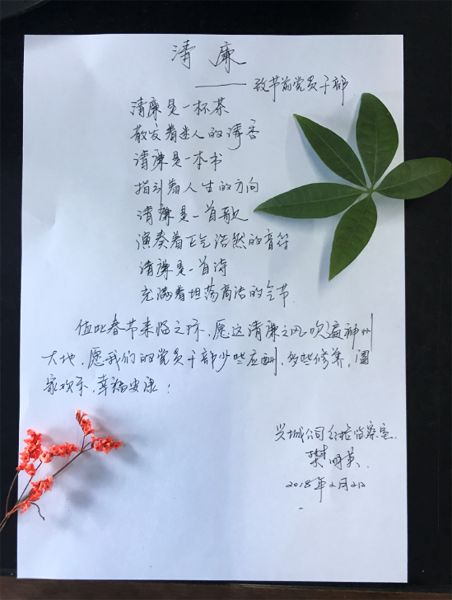 清廉
——致节前党员干部
清廉是一杯茶
散发着迷人的清香
清廉是一本书
指引着人生的方向
清廉是一首歌
演奏着正气浩然的音符
清廉是一首诗
充满着坦荡高洁的气节
值此春节来临之际,愿这清廉之风吹遍神州
大地,愿我们的党员干部少些应酬,多些修养,阖
家欢乐,幸福安康!
兴城公司纪检监察室
英
2018年2月2日